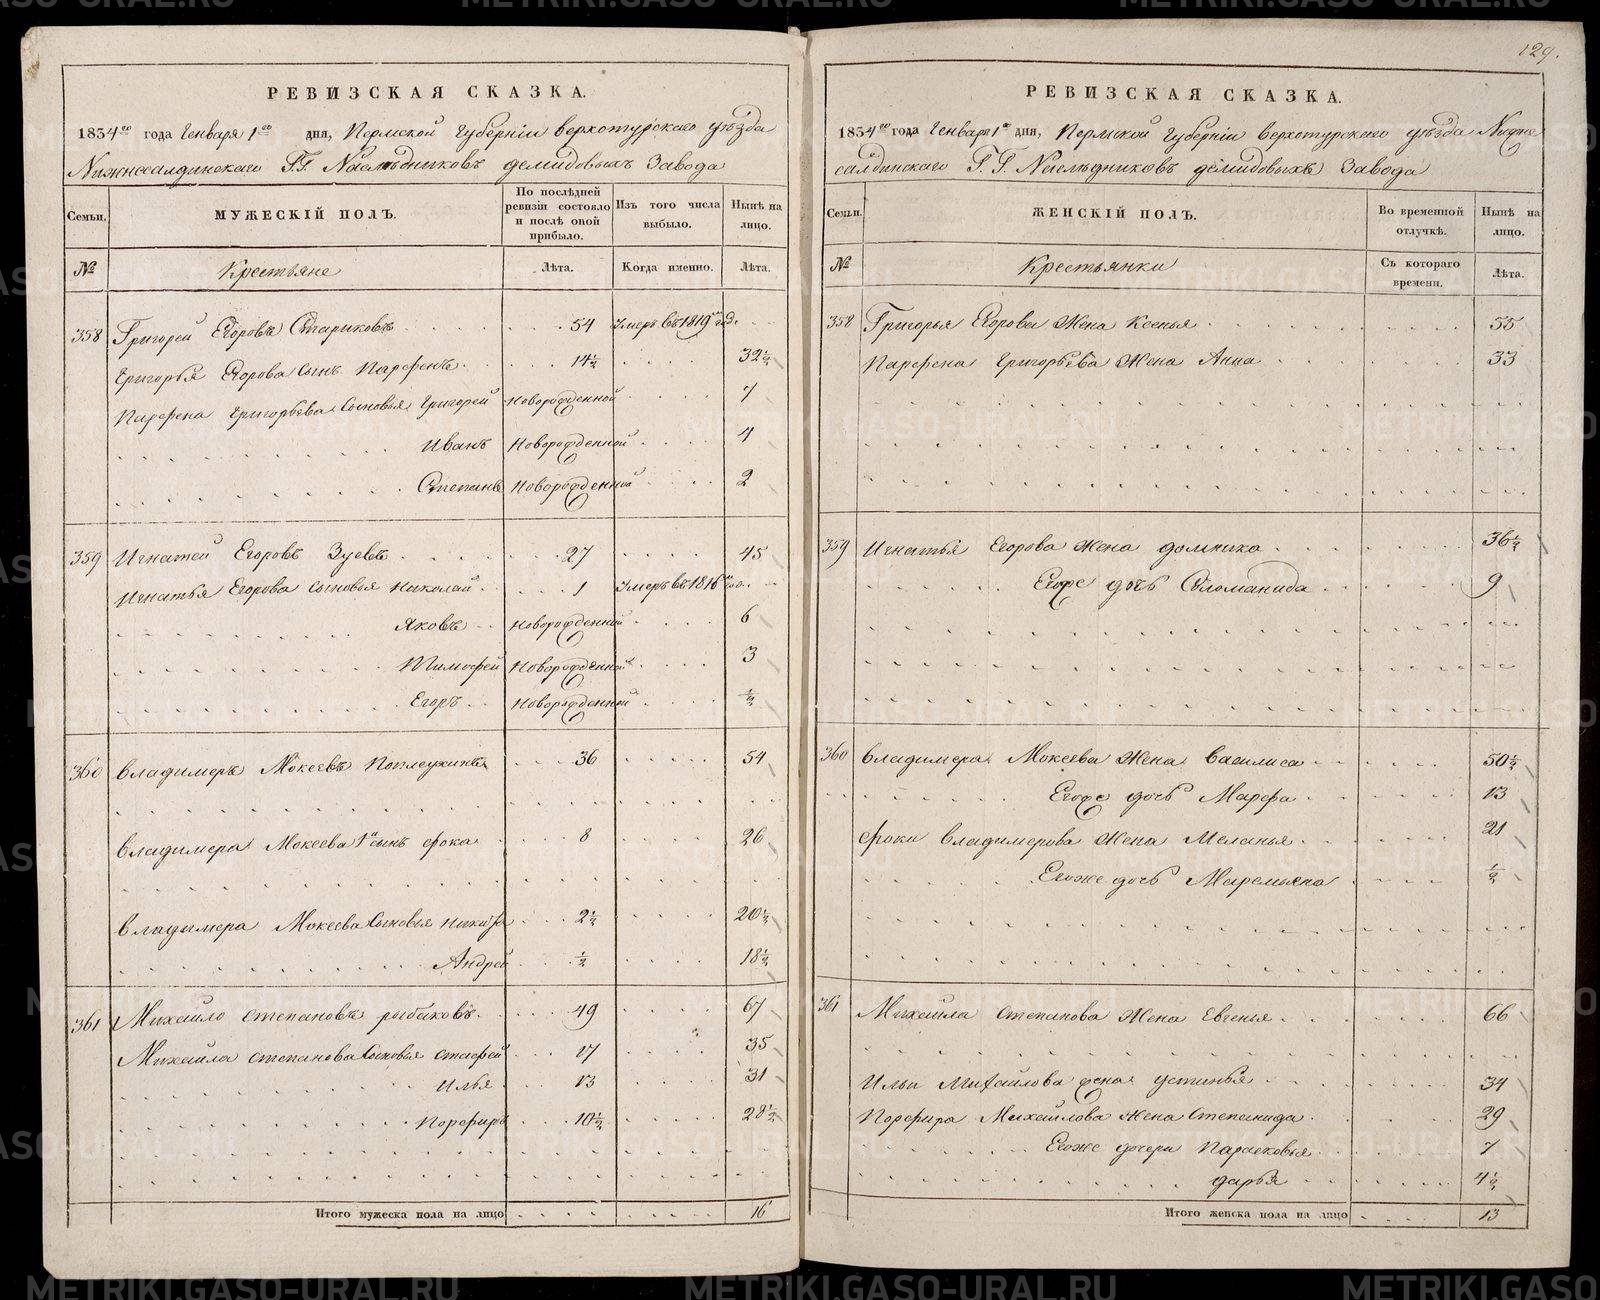 РЕВИЗСКАЯ СКАЗКА.
1834го года Генваря 1го дня, Пермской Губернiи верхотурскаго уѣзда
Нижнесалдинскаго Г.Г. Наслѣдниковъ демидовыхъ Завода
Семьи.
МУЖЕСКIЙ ПОЛЪ.
По послѣдней ревизiи состояло и послѣ оной прибыло.
Изъ того числа выбыло.
Нынѣ на лицо.
№
Крестьяне
Лѣта.
Когда именно.
Лѣта.
358 Григорей Егоровъ Стариковъ 54 Умеръ въ 1819 год.
Григорья Егорова Сынъ Парфенъ 14½ 32½
Парфена Григорьева Сыновья Григорей Новорожденной 7
Иванъ Новорожденной 4
Степанъ Новорожденной 2
359 Игнатей Егоровъ Зуевъ 27 45
Игнатья Егорова сыновья Николай 1 Умеръ въ 1816 го.
Яковъ Новорожденной 6
Тимофей Новорожденной 3
Егоръ Новорожденной ½
360 Владимеръ Мокеевъ Поплеухинъ 36 54
Владимера Мокеева 1й сынъ фока 8 26
Владимера Мокеева Сыновья Никита 2½ 20½
Андрей ½ 18½
361 Михайло Степановъ рыбаковъ 49 67
Михайла Степанова Сыновья Стафей 17 35
Илья 13 31
Порфиръ 10½ 28½
Итого мужеска пола на лицо 16
129.
РЕВИЗСКАЯ СКАЗКА.
1834го года Генваря 1го дня, Пермской Губернiи верхотурскаго уѣзда Нижне
салдинскаго Г.Г. Наслѣдниковъ демидовыхъ Завода
Семьи.
ЖЕНСКIЙ ПОЛЪ.
Во временной отлучкѣ.
Нынѣ на лицо.
№
Крестьянки
Съ котораго времени.
Лѣта.
358 Григорья Егорова Жена Ксенья 55
Парфена Григорьева Жена Анна 33
359 Игнатья Егорова Жена домника 36½
Егоже дочь Соломанида 9
360 Владимера Мокеева Жена Василиса 50½
Егоже дочь Марфа 13
фоки Владимерова Жена Меланья 21
Егоже дочь Маремьяна ½
361 Михайла Степанова Жена Евгенья 66
Ильи Михайлова жена устинья 34
Порфира Михайлова Жена Степанида 29
Егоже дочери Парасковья 7
дарья 4½
Итого женска пола на лицо 13
METRIKI.GASO-URAL.RU